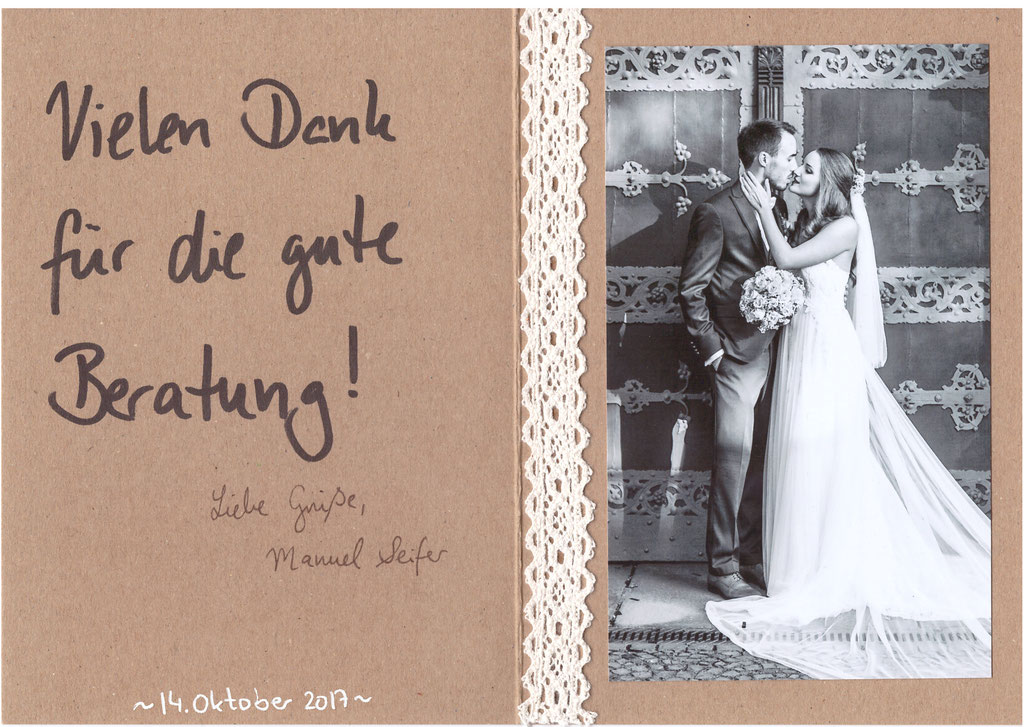 Vielen Dank
für die gute
Beratung!
Liebe Grüße,
Manuel Seifer
~14. Oktober 2017~